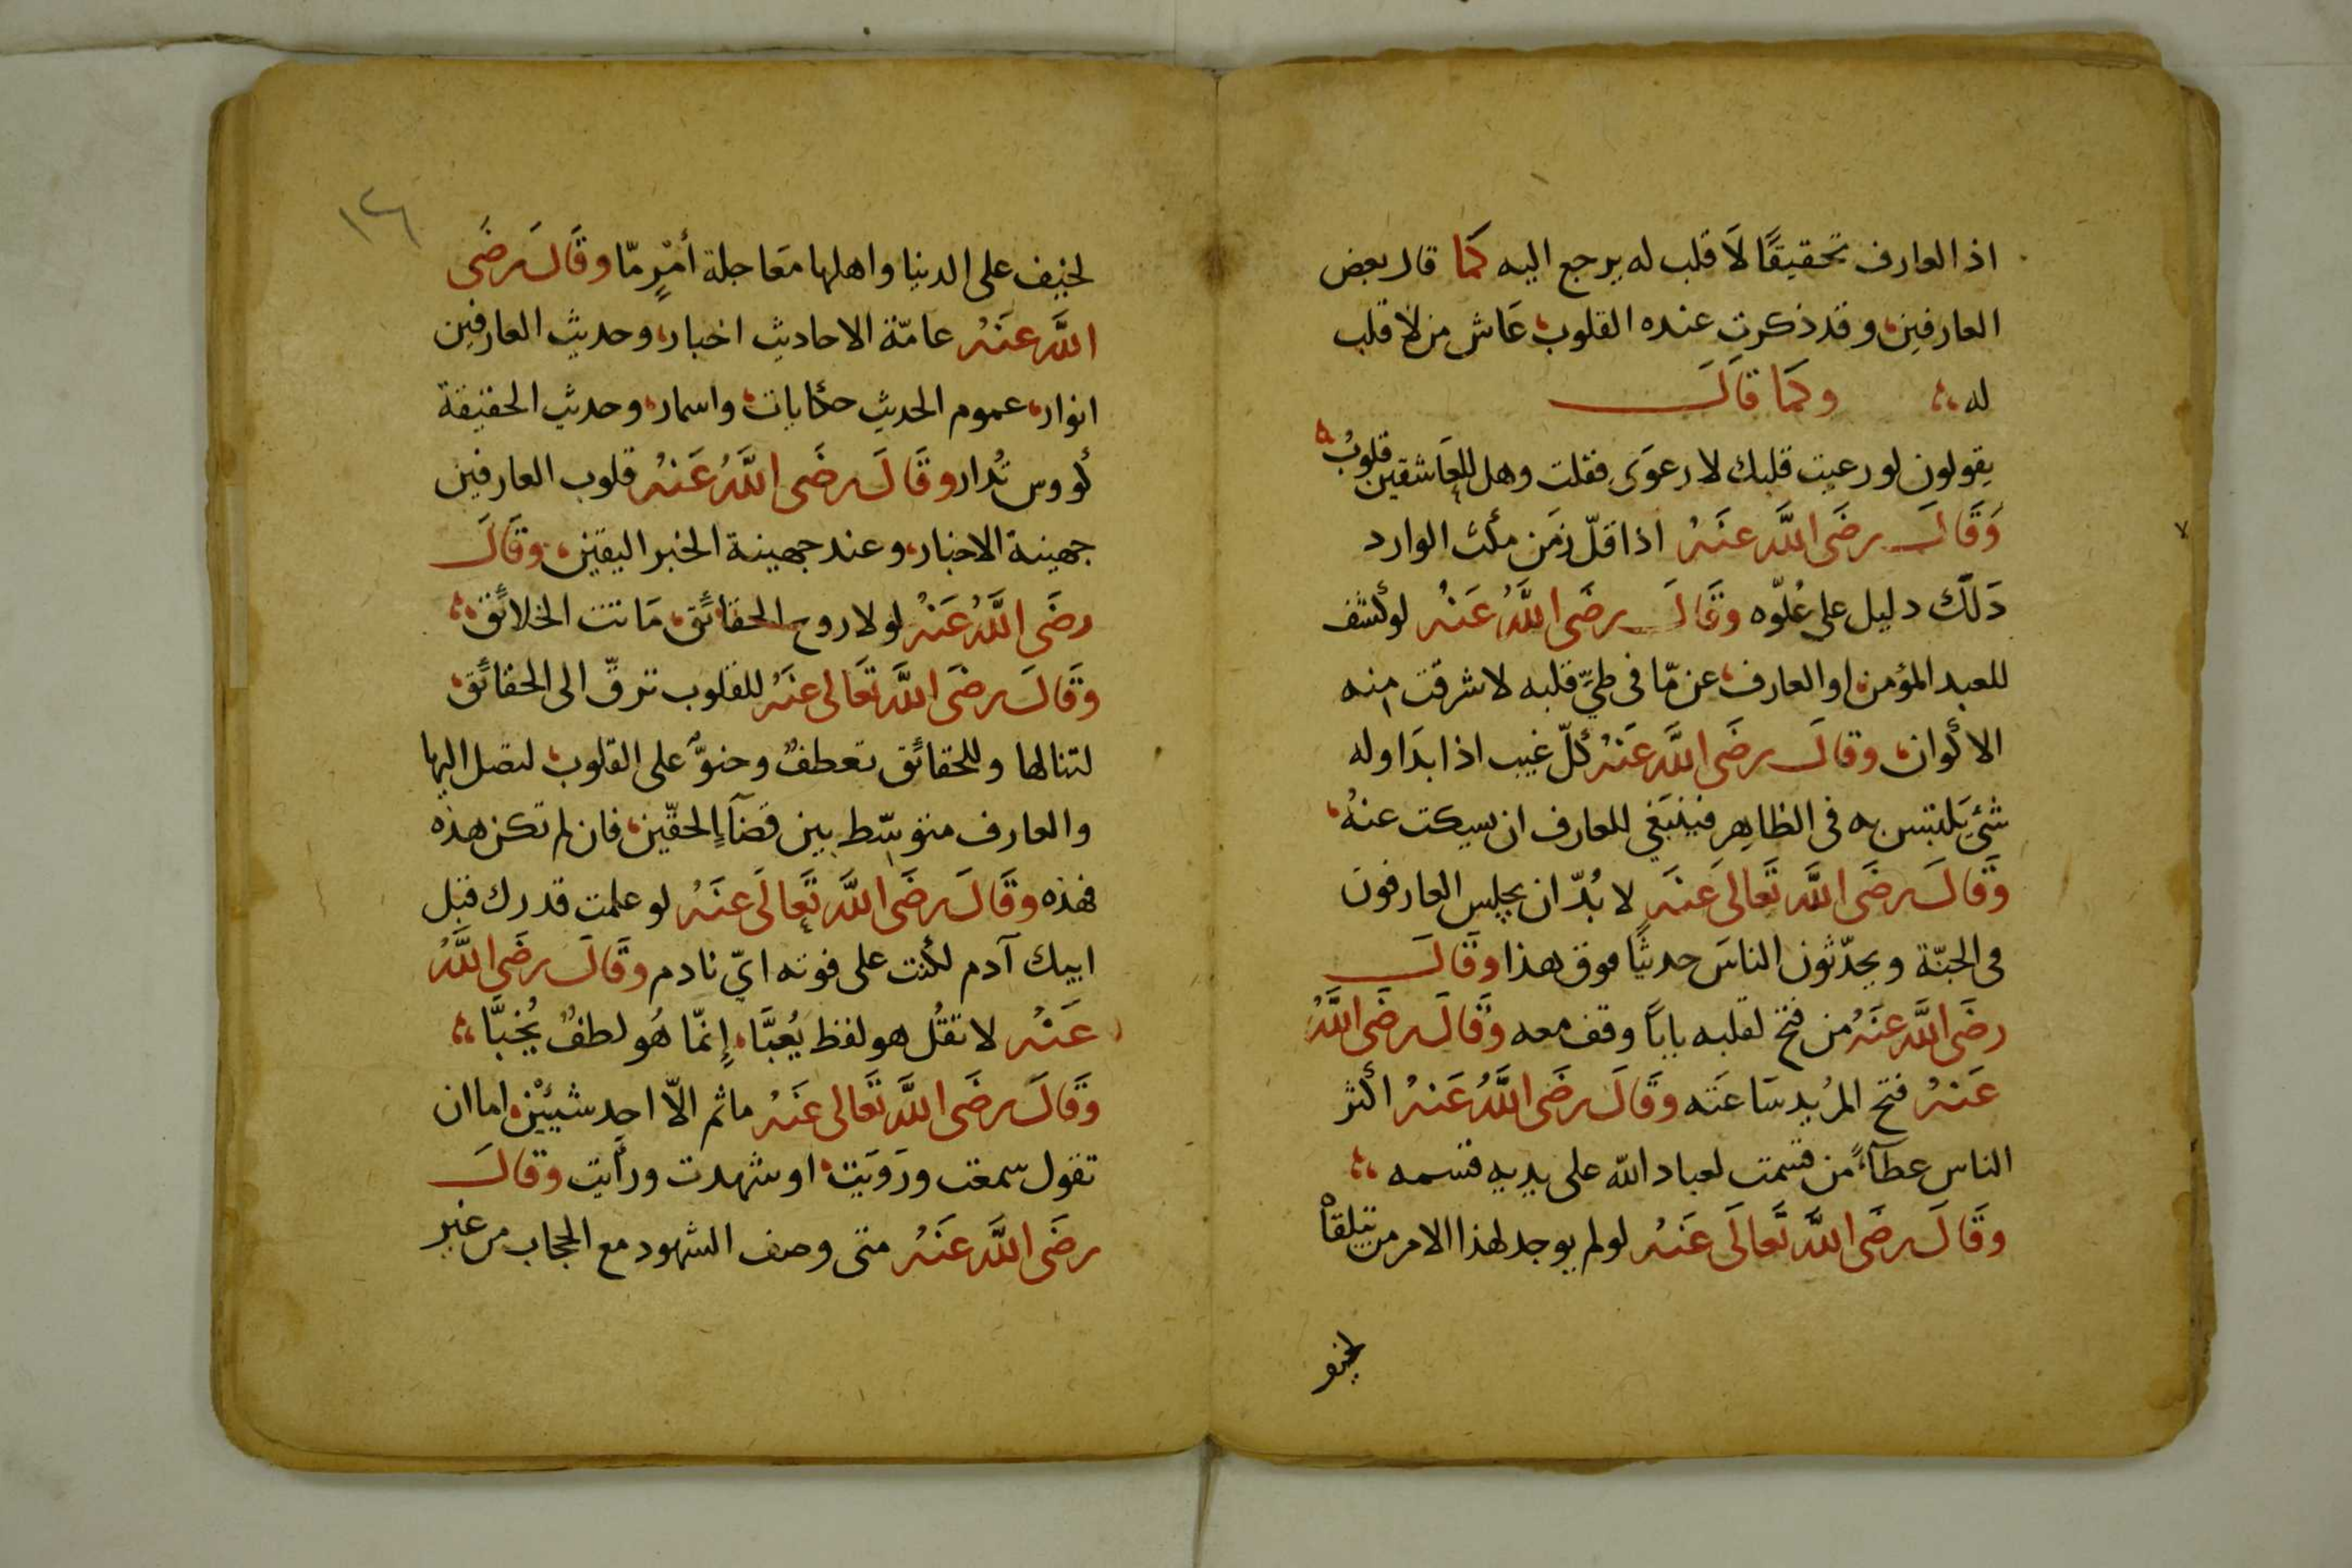 اذ العارف تحقيقًا لَا قلب له يرجع اليه كمَا قال بعض
العارفين وقد ذكرت عنده القلوب عَاش من لا قلب
له وكمَا قالَ
يقولون لو رعيت قلبك لا رعوَى فقلت وهل للعَاشقين قلوبُ
وَقَالَ رضَى اللَّه عنَهُ اذا قلّ زمَن مكث الوارد
دَلكَ دليل على عُلوّه وقَالَ رضَى اللَّهُ عَنْهُ لو كشف
للعبد المؤمن او العارف عن مّا فى طيِّ قلبه لاشرقت منه
الاكوان وقالَ رضَى اللَّه عَنهُ كلّ غيب اذا بدَا وله
شئ يَلتبس به فى الظاهِر فينبَغي للعارف ان يسكت عنهُ
وَقَالَ رضَى اللَّه تَعَالىَ عنَه لا بُدّ ان يجلس العارفونَ
فى الجنّة ويحدّثون الناسَ حديثًا فوق هذا وقَالَ
رضَى اللَّه عنَهُ من فتح لقلبه بابَا وقف معه وَقَالَ رضَى اللَّهُ
عَنهُ فتح المرُيد سَاعَته وقَالَ رضَى اللَّهُ عَنهُ اكثر
الناس عطآءً من قسمت لعباد الله على يديه قسمه
وَقَالَ رضَى اللَّه تَعالَى عَنهُ لو لم يوجد لهذا الامر من يتلقاه
لخيف
١٢٦
لخيف على الدنيا واهلها مَعَاجلة أمْرٍ مّا وقَالَ رضَى
اللَّه عنَهُ عامّة الاحاديث اخبار وحديث العارفين
انوار عموم الحديث حكايات واسمار وحديث الحقيقة
كووس تُدار وقَالَ رضَى اللَّهُ عَنهُ قلوب العارفين
جهينة الاخبار وعند جهينة الخبر اليقين وقَالَ
رضَى اللَّهُ عَنهُ لولا روح الحقائق مَاتت الخلائق
وَقَالَ رضَى اللَّه تَعَالى عنَهُ للقلوب ترقٍّ الى الحقائق
لتنالها وللحقائق تعطفٌ وحنوٌّ على القلوب لتصل اليها
والعارف متوسّط بين قضآءِ الحقّين فان لم تكن هذه
فهذه وقَالَ رضَى اللَّه تَعالَى عنَهُ لو علمت قدرك قبل
ابيك آدم لكنت على فوته ايّ نادم وقَالَ رضَى اللَّهُ
عَنْهُ لا تقُل هو لفظ يُعبَّا إنمّا هُو لطفٌ يُخبَّا
وَقَالَ رضَى اللَّه تَعَالى عَنَهُ ماثم الاّ احد شيئيْن اما ان
تقول سمعت ورَوَيَت او شهدت ورأيت وقالَ
رضَى اللَّه عنَهُ متى وصف الشهود مع الحجاب من غير